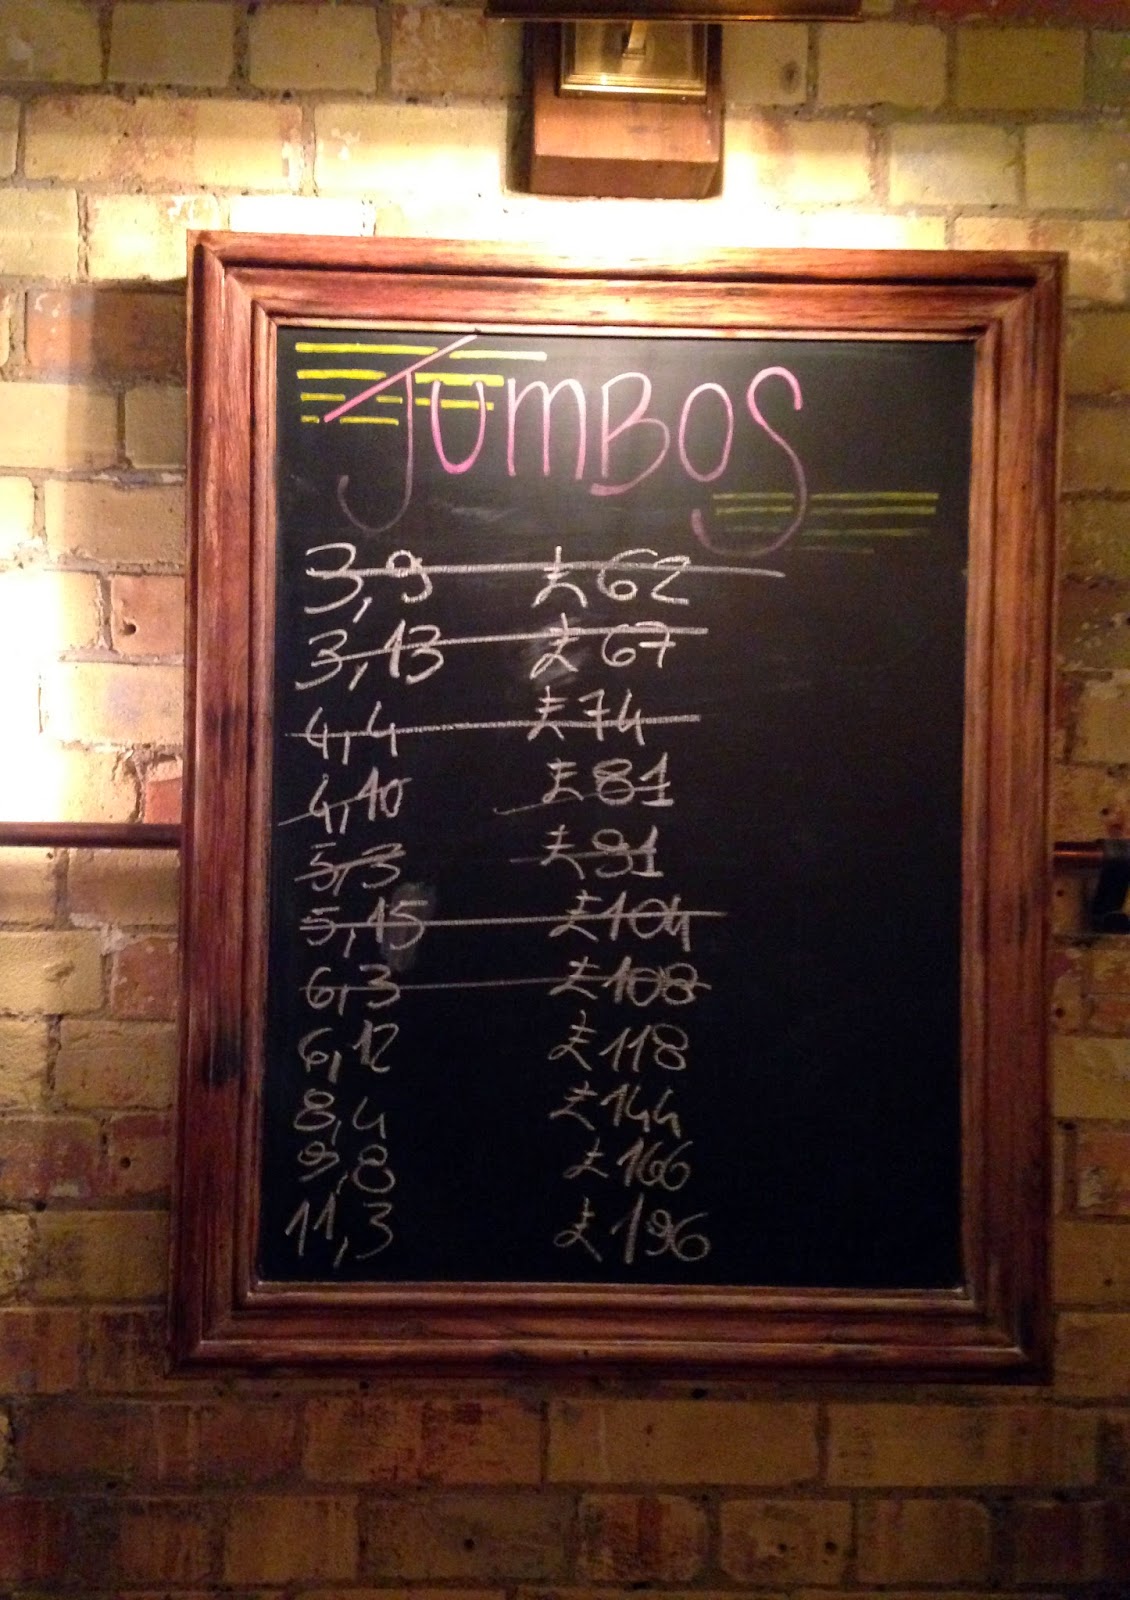 JUMBOS
3,9 £62
3,13 £67
4,4 £74
4,10 £81
5,3 £91
5,15 £104
6,3 £108
6,12 £118
8,4 £144
9,8 £166
11,3 £196